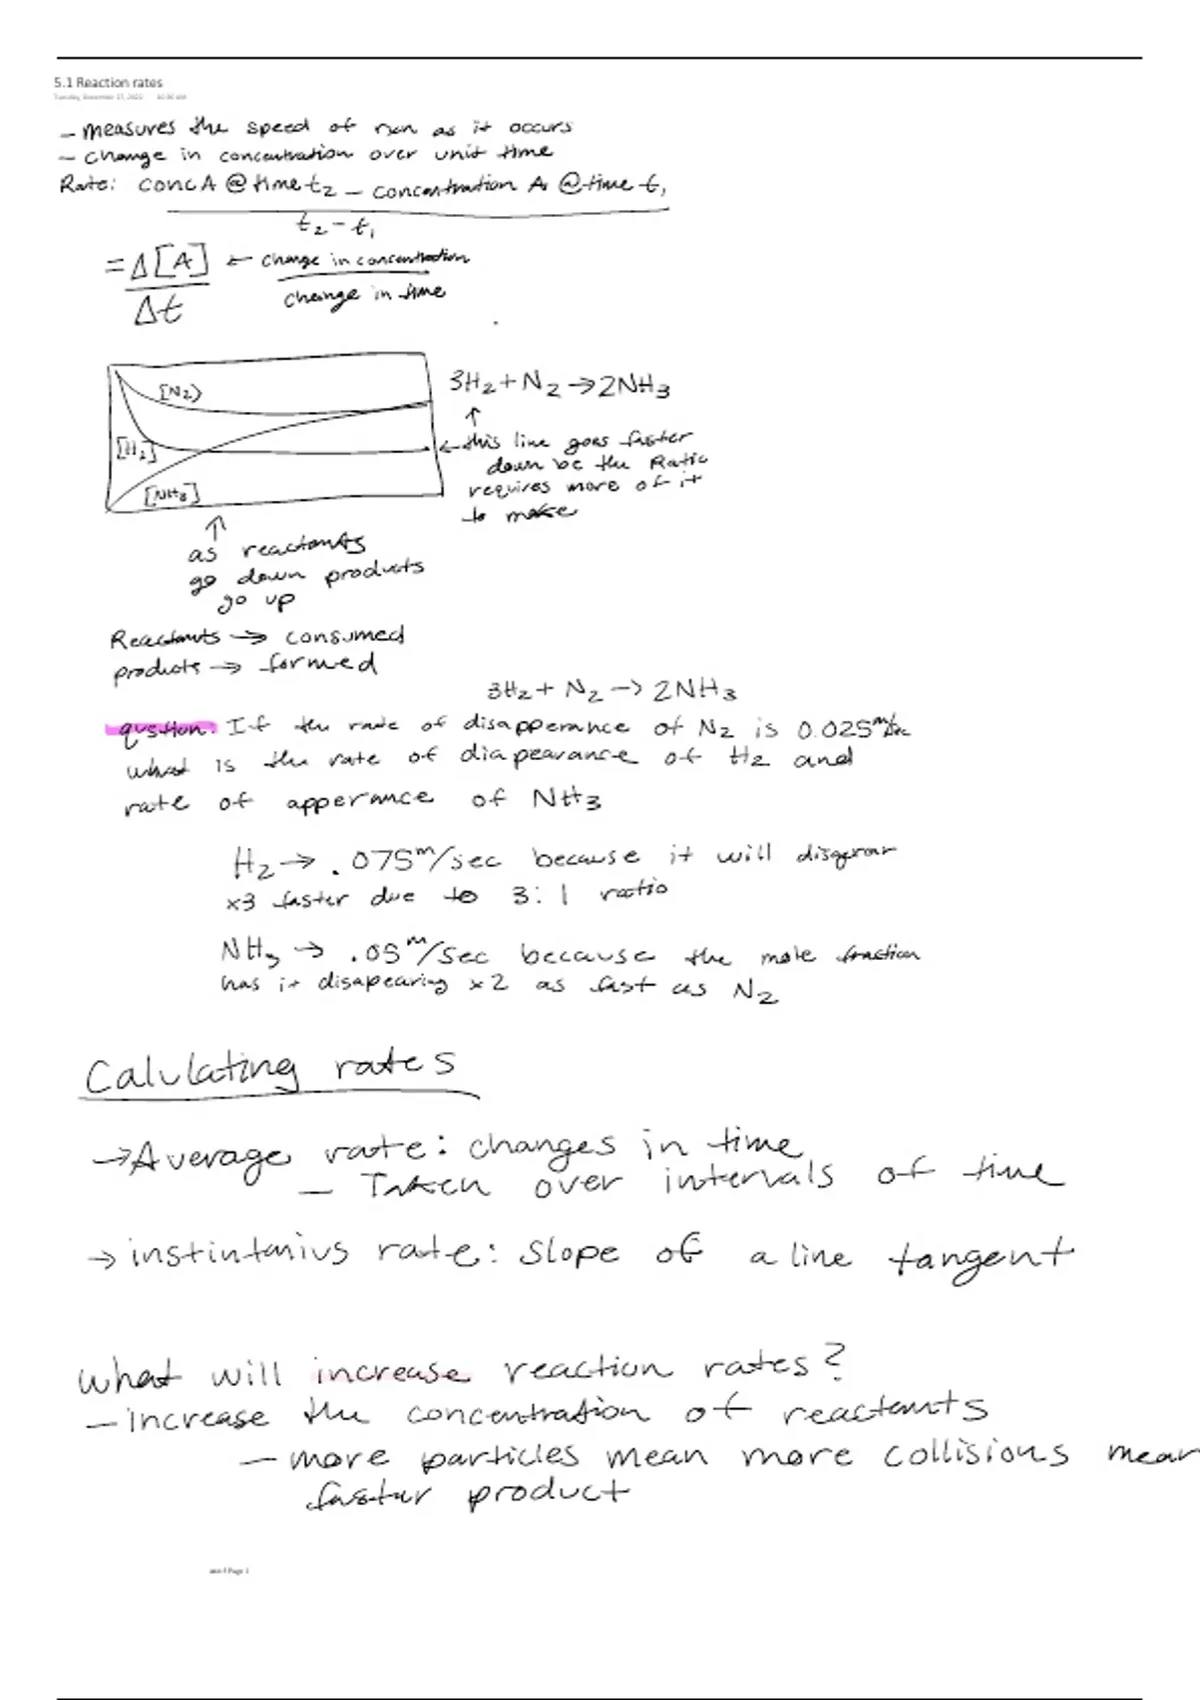 5.1 Reaction rates
Tuesday, December 27, 2022
- measures the speed of rxn as it occurs
- change in concentration over unit time
Rate: conc A @ time t₂ - concentration A @ time t₁
t₂ - t₁
= Δ[A] ← change in concentration
Δt change in time
[N₂]
[H₂]
[NH₃]
3H₂ + N₂ → 2NH₃
↑
← this line goes faster
down bc the Ratio
requires more of it
to make
↑
as reactants
go down products
go up
Reactants → consumed
products → formed
3H₂ + N₂ → 2NH₃
question: If the rate of disapperance of N₂ is 0.025 m/sec
what is the rate of diapearance of H₂ and
rate of apperance of NH₃
H₂ → .075 m/sec because it will
x3 faster due to 3:1 ratio
NH₃ → .05 m/sec because the mole fraction
has it disapearing x2 as fast as N₂
Calulating rates
→ Average rate: changes in time
- Taken over intervals of time
→ instintanius rate: slope of a line tangent
what will increase reaction rates?
- increase the concentration of reactants
- more particles mean more collisions mean
faster product
Page 1